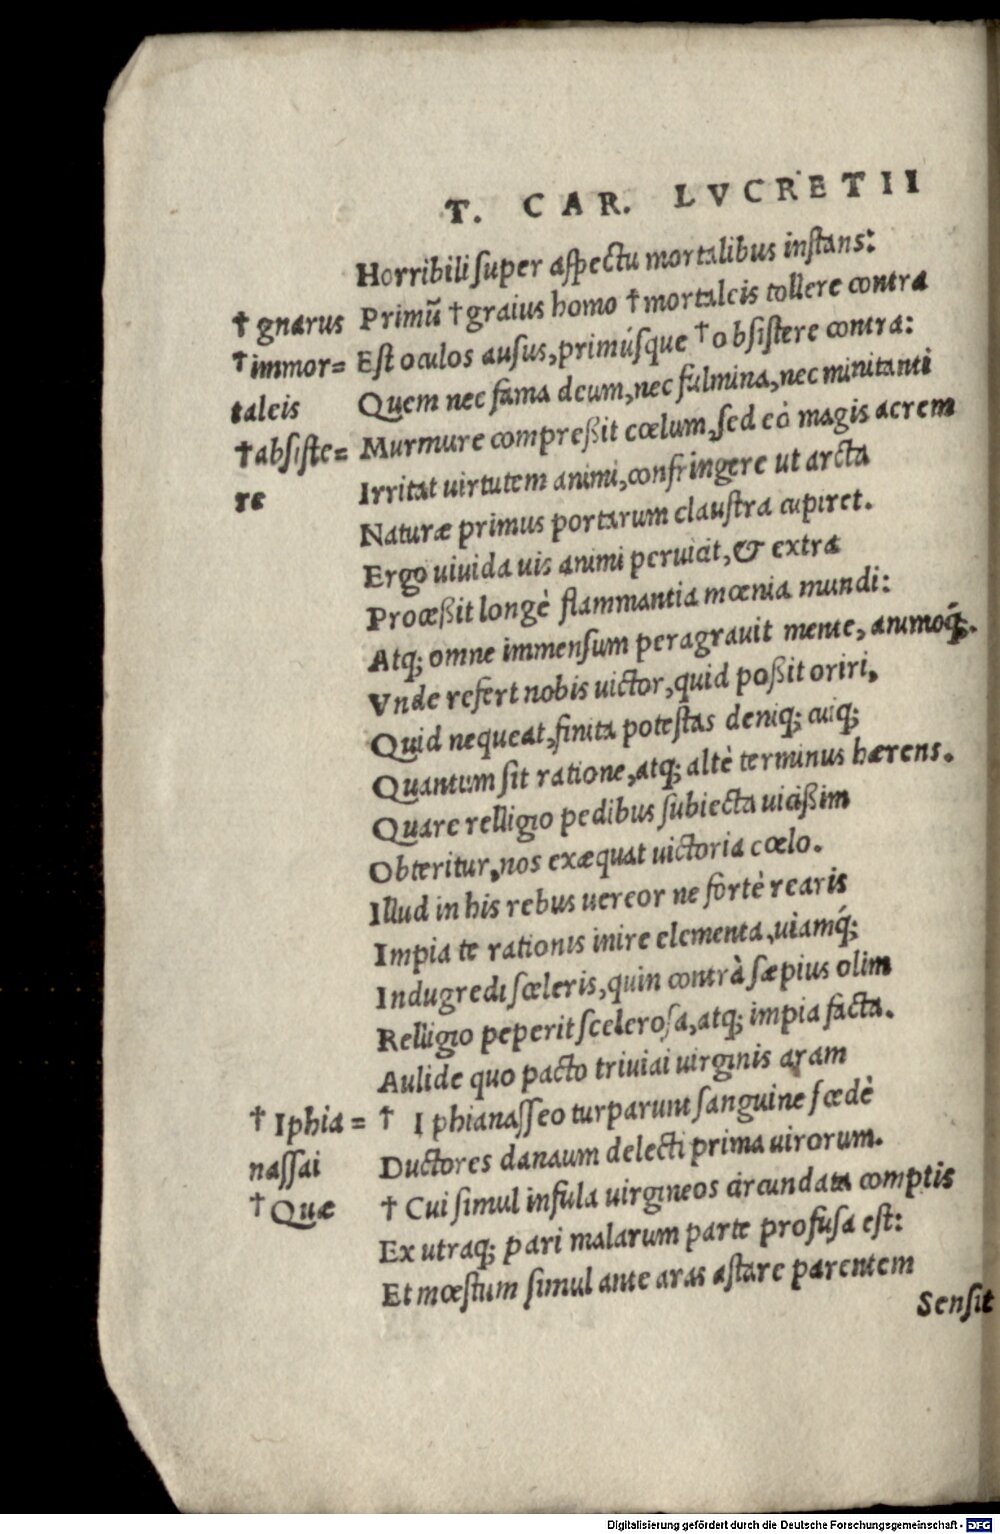 T. CAR. LVCRETII
Horribili ſuper aſpectu mortalibus inſtans:
† gnarus Primũ † graius homo † mortaleis tollere contra
† immor= Eſt oculos auſus, primúſque † obſiſtere contra:
taleis Quem nec fama deum, nec fulmina, nec minitanti
† abſiſte= Murmure compreßit cœlum, ſed eò magis acrem
re Irritat uirtutem animi, confringere ut arcta
Naturæ primus portarum clauſtra cupiret.
Ergo uiuida uis animi peruicit, & extra
Proceßit longè flammantia mœnia mundi:
Atq; omne immenſum peragrauit mente, animoq́;.
Vnde refert nobis uictor, quid poßit oriri,
Quid nequeat, finita poteſtas deniq; cuiq;
Quantum ſit ratione, atq; altè terminus hærens.
Quare relligio pedibus ſubiecta uicißim
Obteritur, nos exæquat uictoria cœlo.
Illud in his rebus uereor ne fortè rearis
Impia te rationis inire elementa, uiamq́;
Indugredi ſceleris, quin contrà ſæpius olim
Relligio peperit ſceleroſa, atq; impia facta.
Aulide quo pacto triuiai uirginis aram
† Iphia= † Iphianaſſeo turparunt ſanguine fœdè
naſſai Ductores danaum delecti prima uirorum.
† Quæ † Cui ſimul infula uirgineos circundata comptis
Ex utraq; pari malarum parte profuſa eſt:
Et mœſtum ſimul ante aras aſtare parentem
Senſit
Digitalisierung gefördert durch die Deutsche Forschungsgemeinschaft - DFG